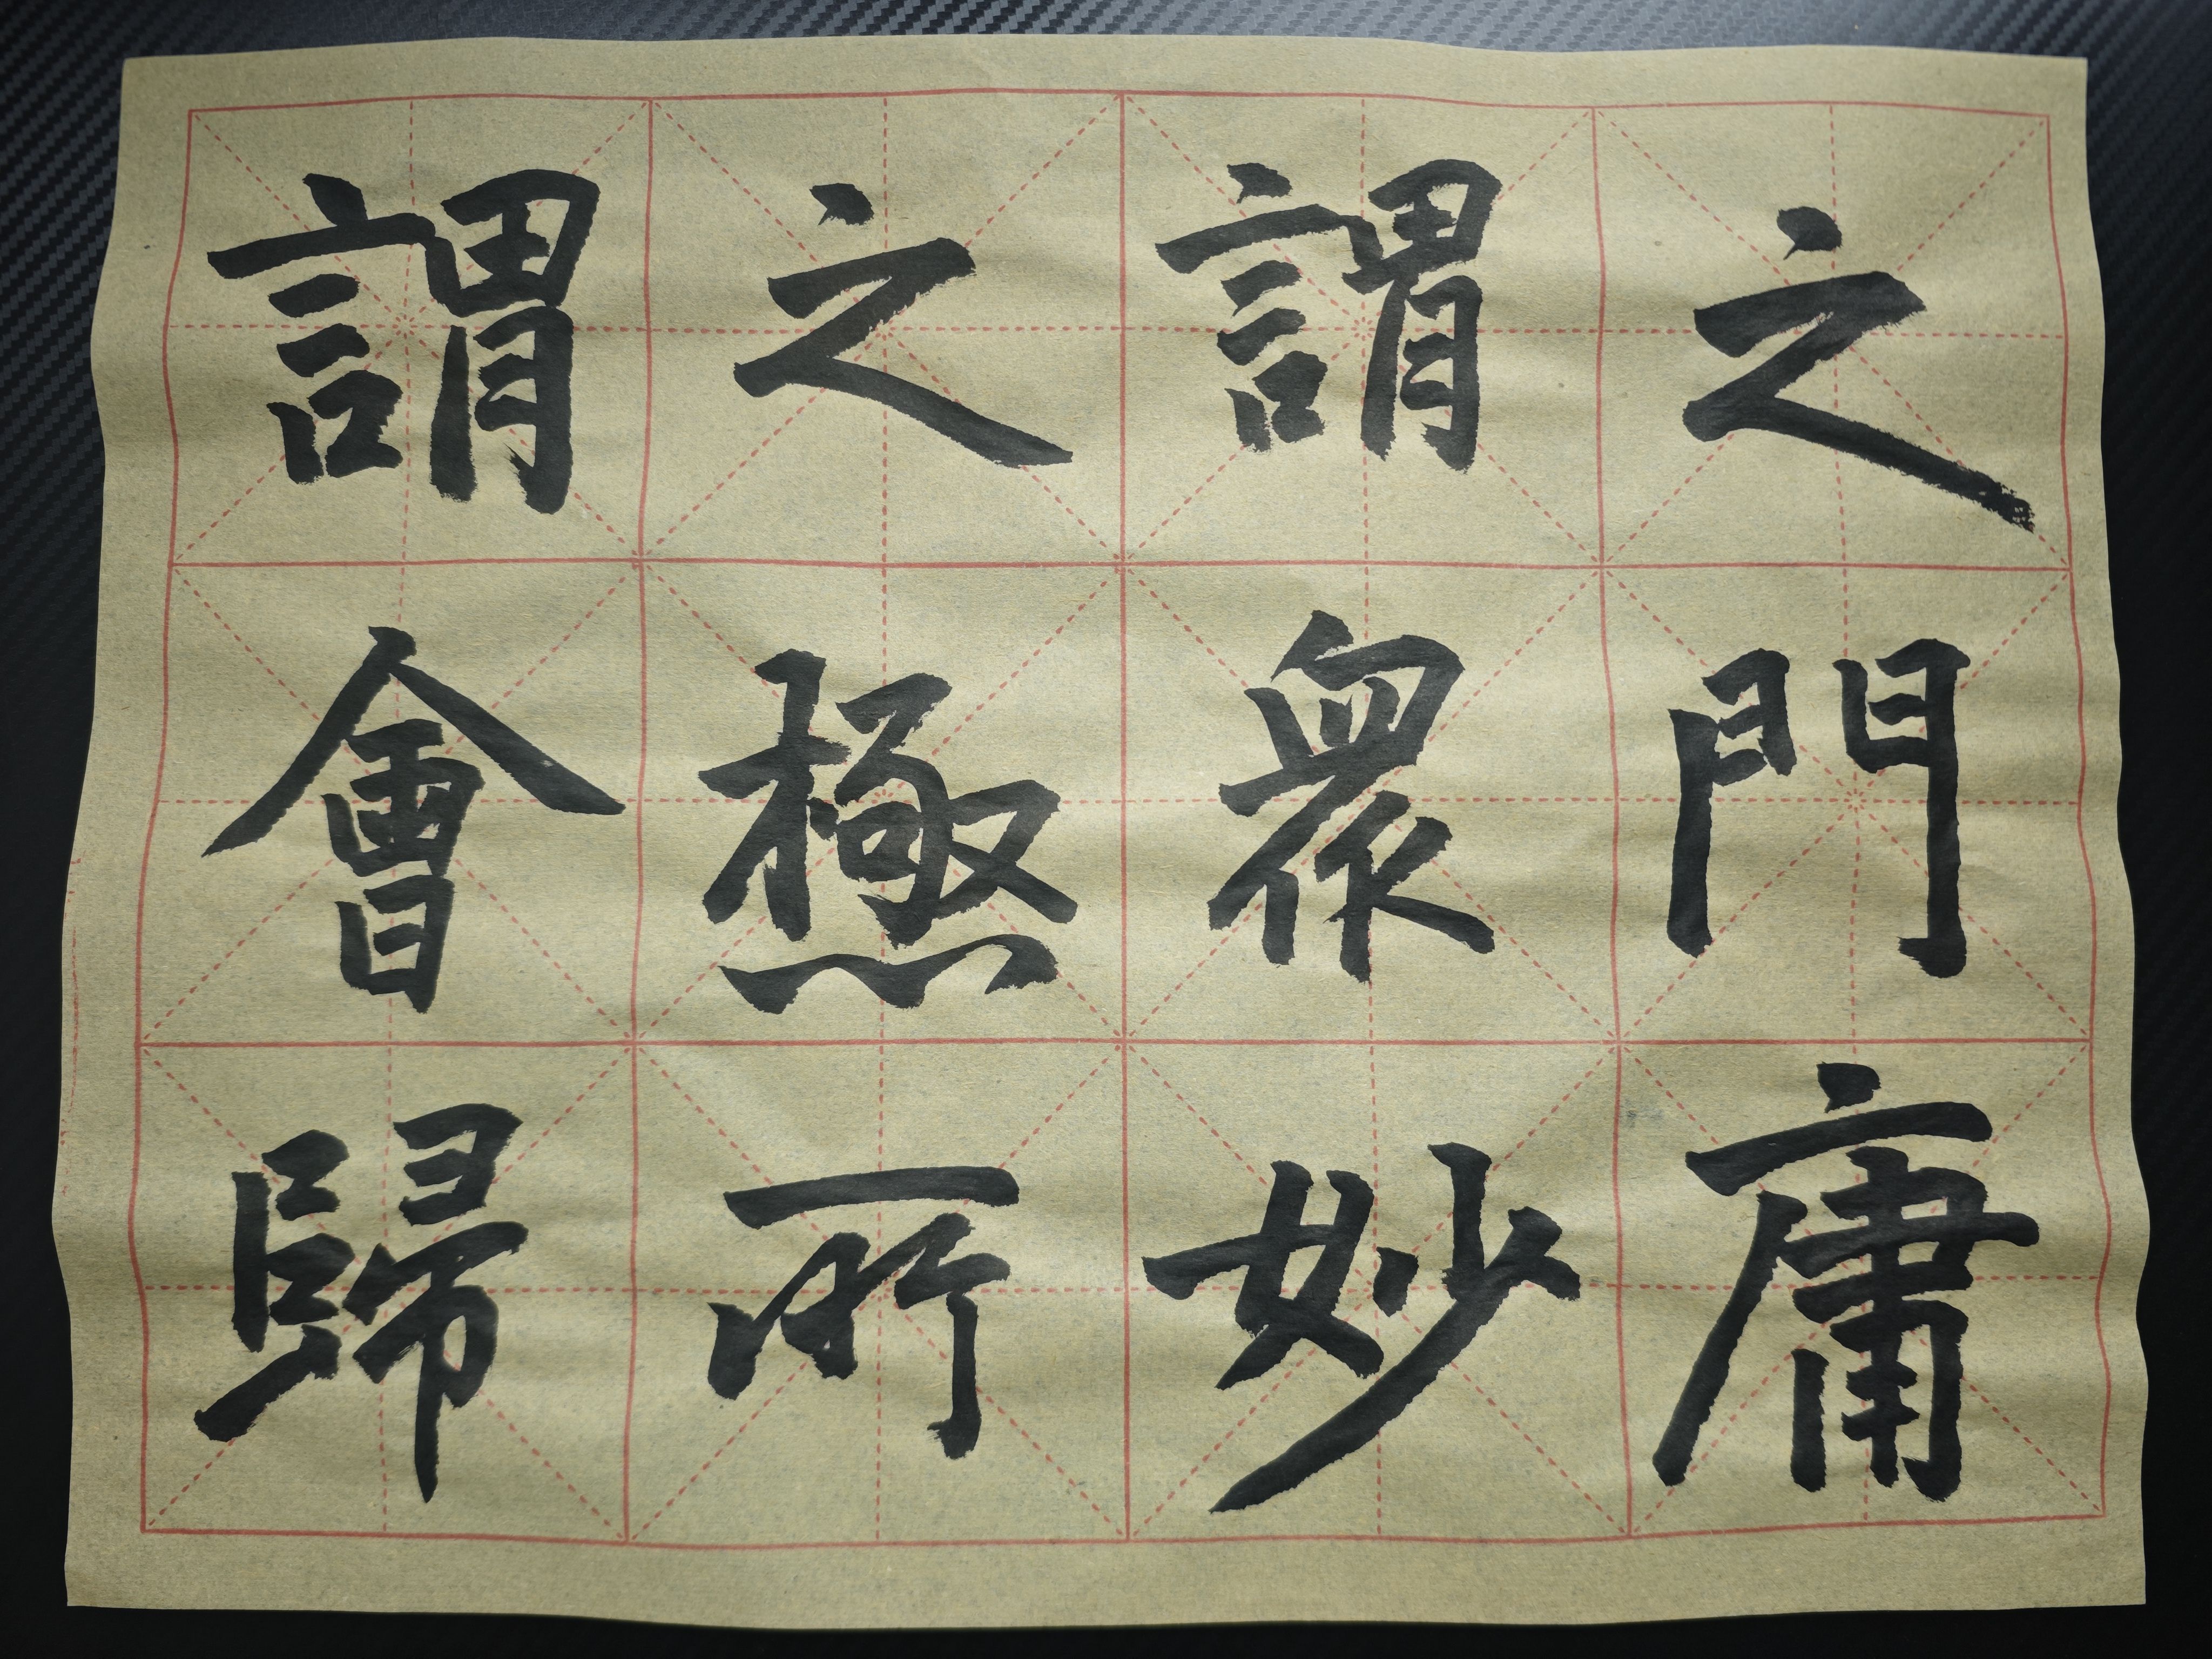 謂會歸
之極所
謂衆妙
之門庸